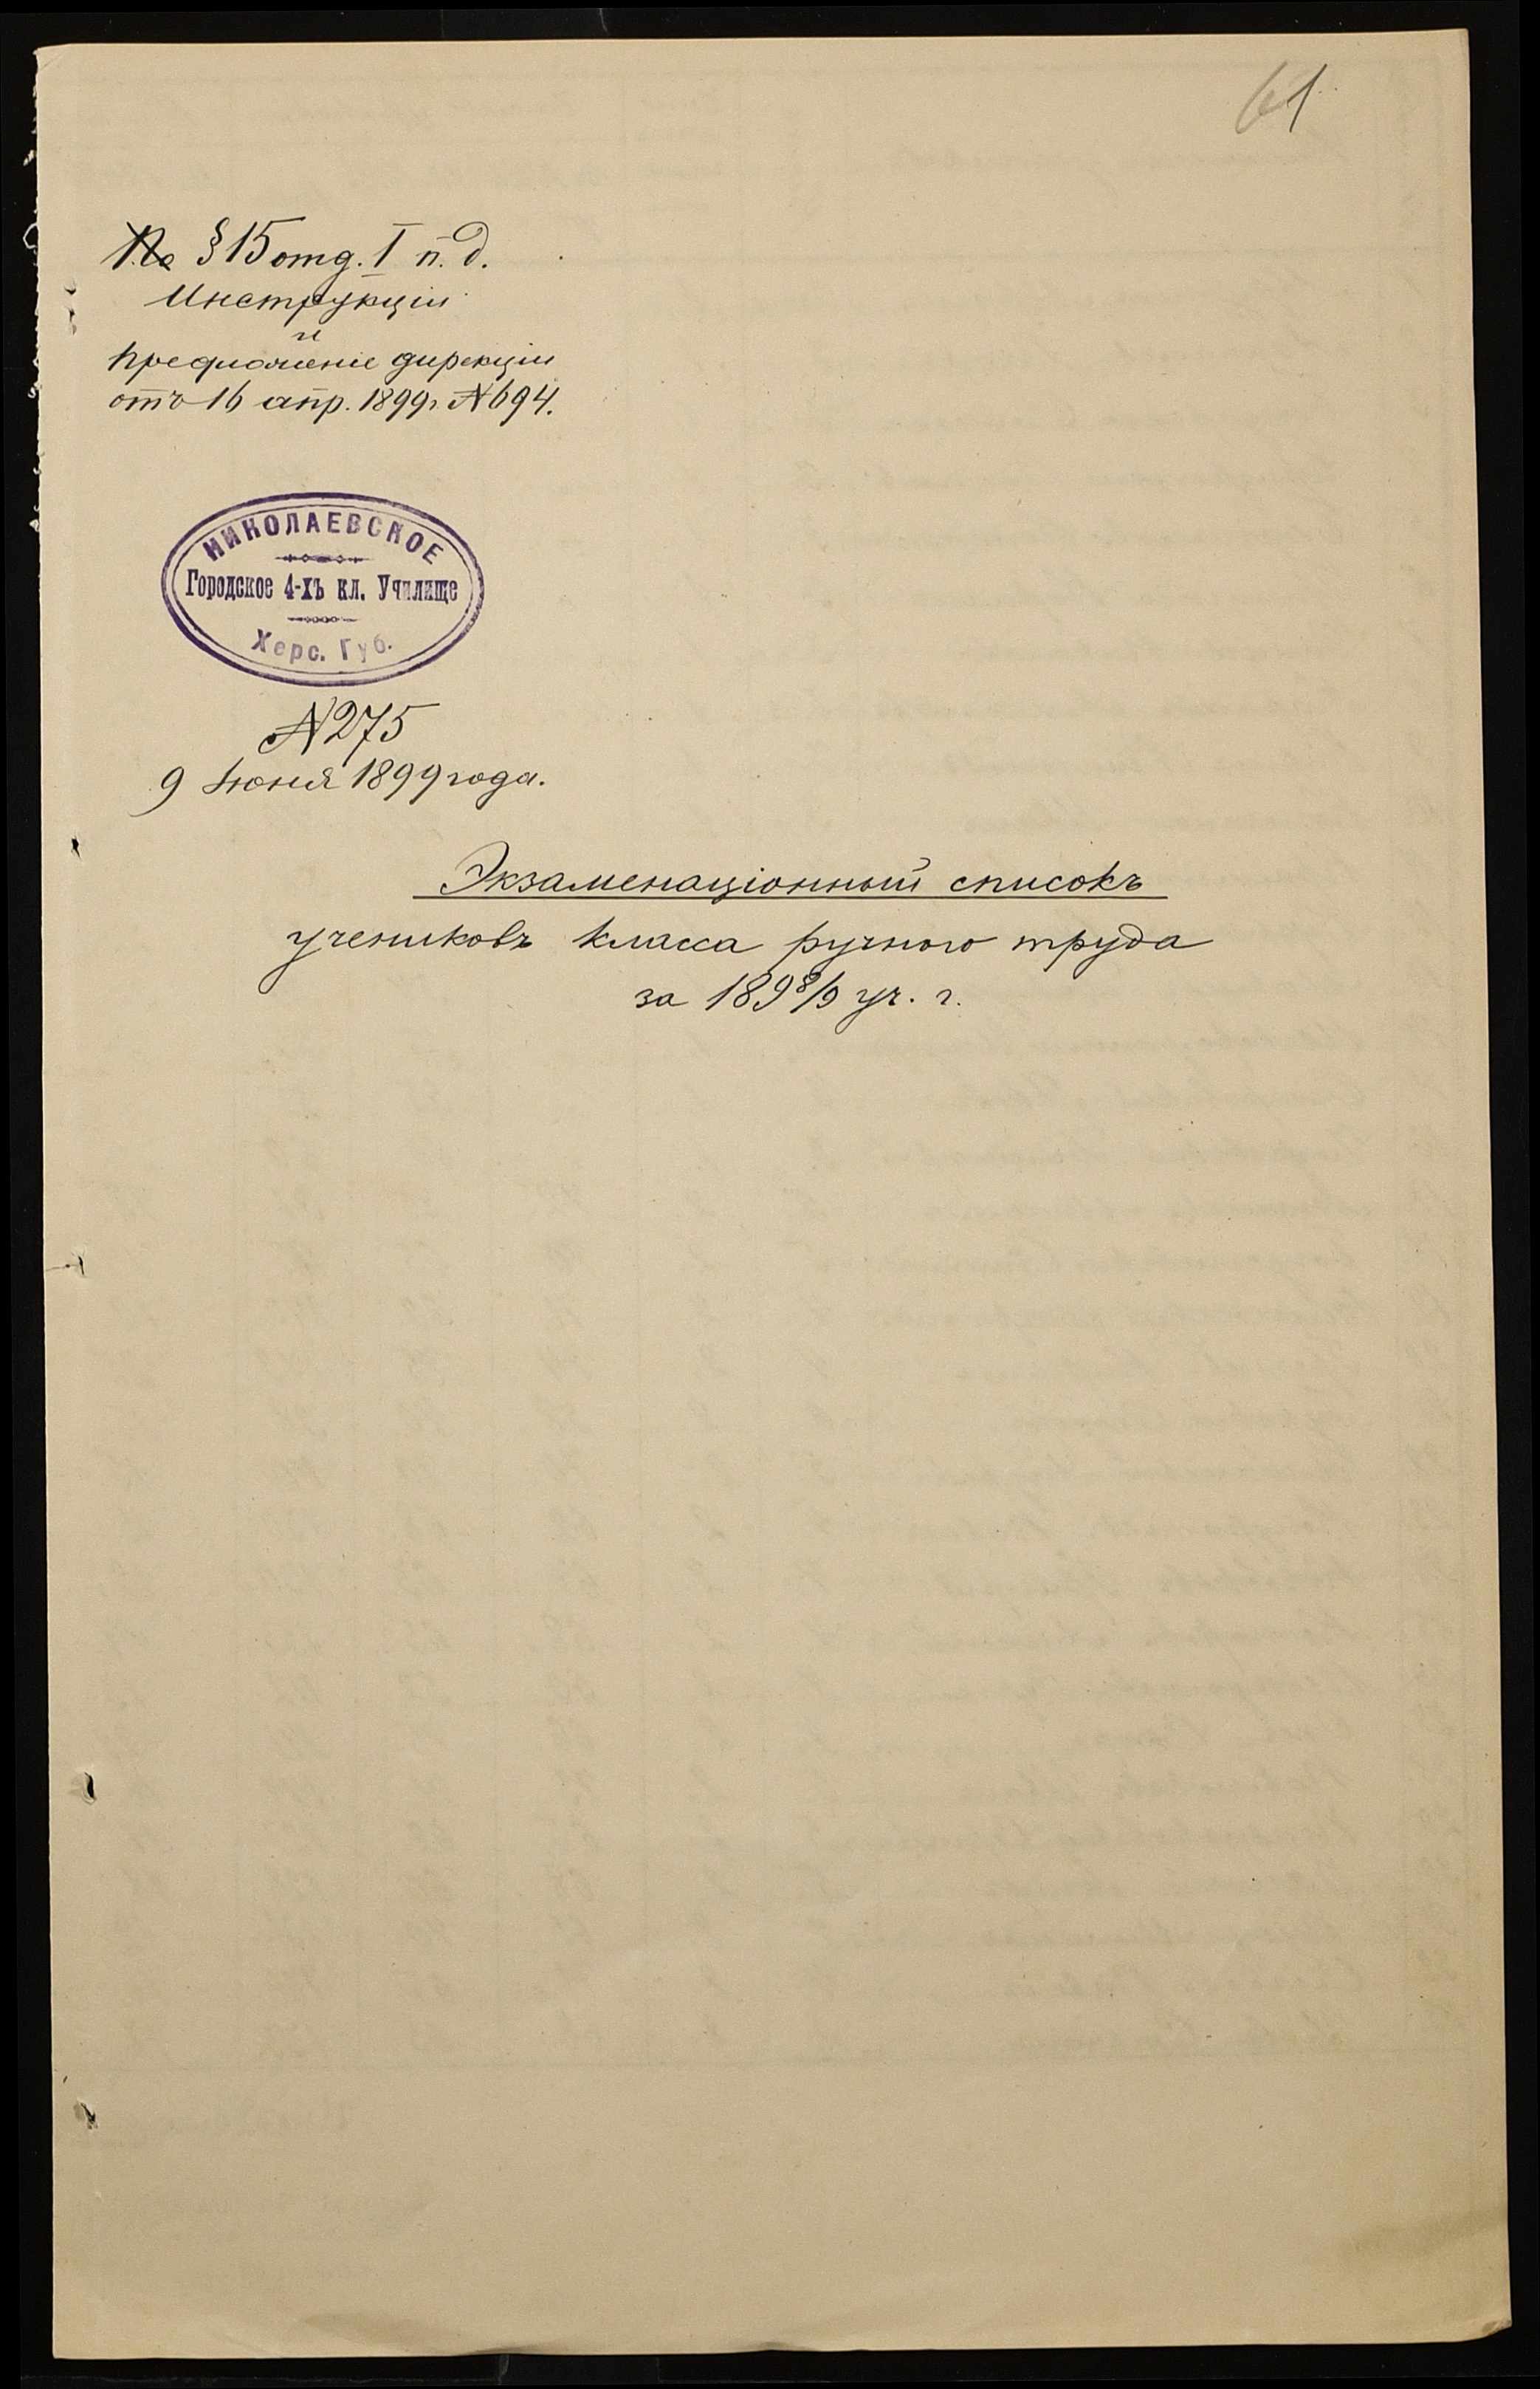 61
§ 15 отд. I п. д.
Инструкціи
и
предложеніе дирекціи
отъ 16 апр. 1899 г. № 694.
НИКОЛАЕВСКОЕ
Городское 4-хъ кл. Училище
Херс. Губ.
№ 275
9 Іюня 1899 года.
Экзаменаціонный списокъ
учениковъ класса ручного труда
за 1898/9 уч. г.